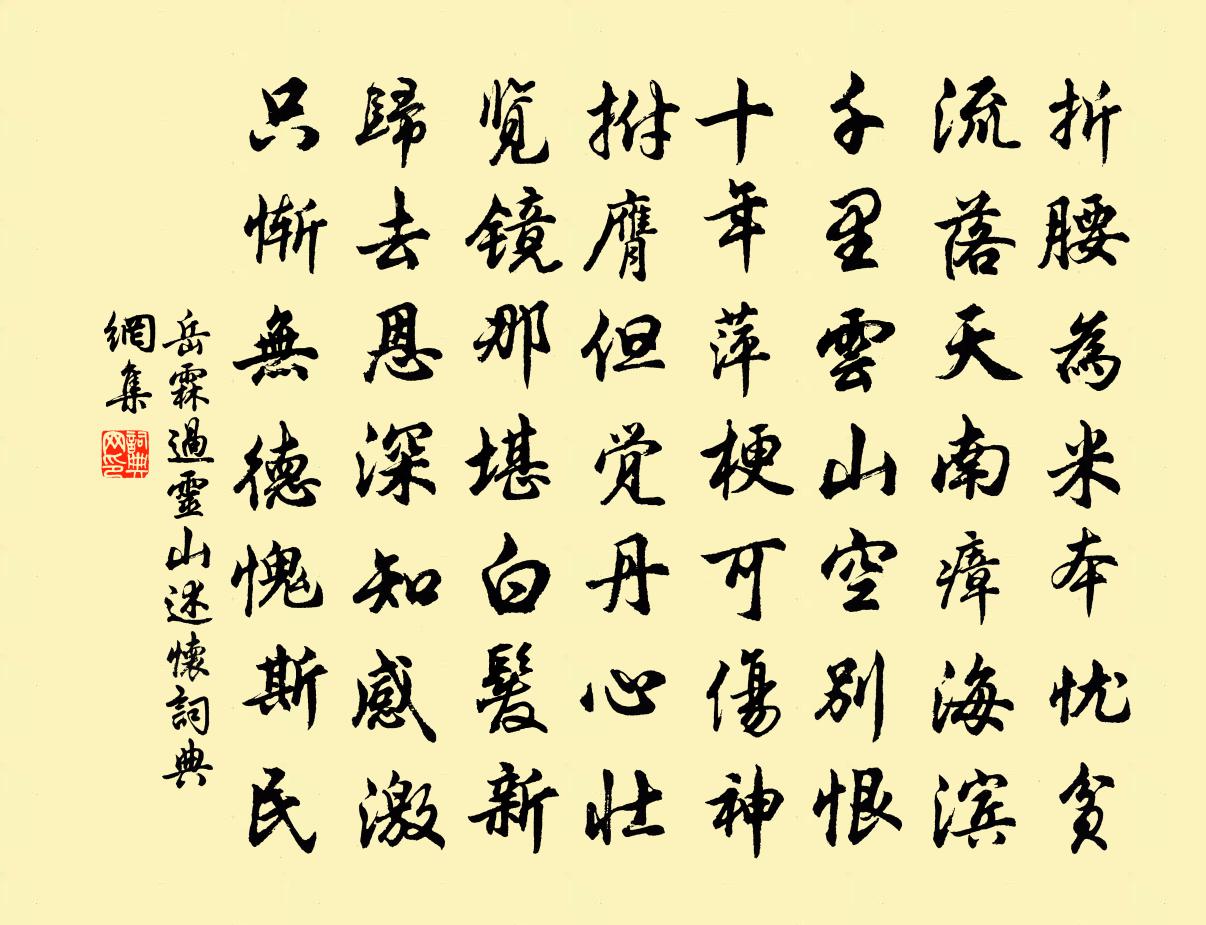 折腰為米本忧贫
流落天南瘴海滨
千里雲山空别恨
十年萍梗可傷神
拊膺但觉丹心壮
览镜那堪白髮新
歸去恩深知感激
只慚無德愧斯民
岳霖過靈山述懷詞典
網集
詞典
网印